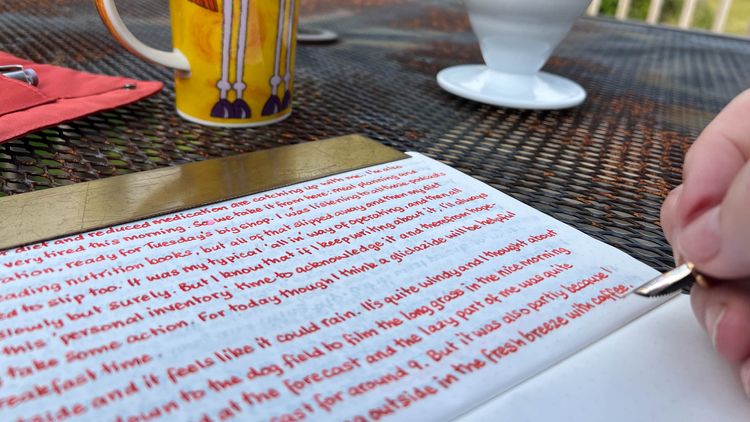 diet and reduced medication are catching up with me. I'm also
very tired this morning. So we take it from here: meal planning and
ation, ready for Tuesday's big shop. I was listening to all those podcasts
eading nutrition books, but all of that slipped away and then my diet
ed to slip too. It was my typical 'all in' way of operating and then, all
slowly but surely. But I know that if I keep writing about it, I'll always
this 'personal inventory' time to acknowledge it and therefore
take some action. For today though I think a gliclazide will be helpful
reakfast time.
tside and it feels like it could rain. It's quite windy and I thought about
down to the dog field to film the long grass in the nice morning
d at the forecast and the lazy part of me was quite
cast for around 9. But it was also partly because I
g outside in the fresh breeze with coffee.